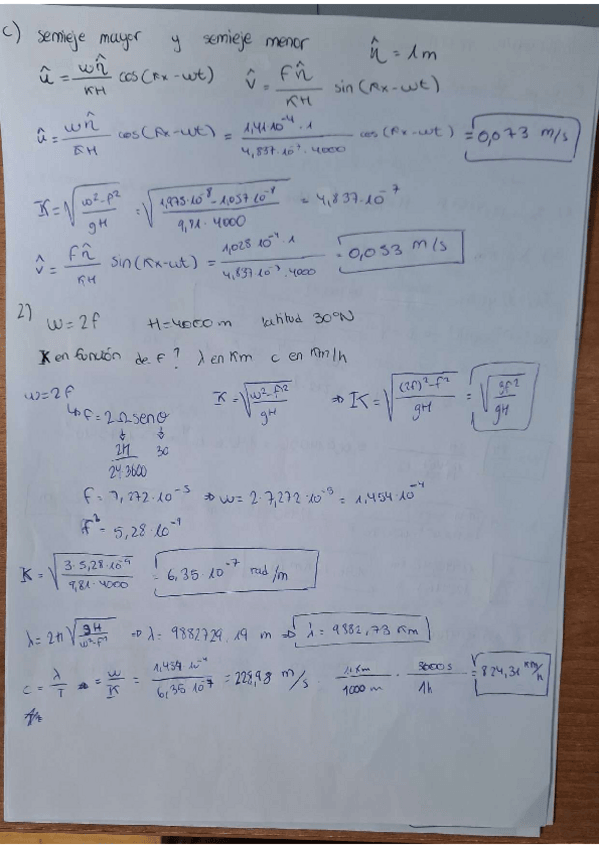 c) semieje mayor y semieje menor η̂ = 1m
û = ωη̂/KH cos(Kx-ωt) v̂ = fη̂/KH sin(Kx-ωt)
û = ωη̂/KH cos(Kx-ωt) = 1,41·10⁻⁴·1/4,837·10⁻⁷·4000 cos(Kx-ωt) = 0,073 m/s
K = √(ω²-f²/gH) = √(1,975·10⁻⁸-1,057·10⁻⁸/9,81·4000) = 4,837·10⁻⁷
v̂ = fη̂/KH sin(Kx-ωt) = 1,028·10⁻⁴·1/4,837·10⁻⁷·4000 = 0,053 m/s
2) ω=2f H=4000 m latitud 30°N
K en función de f? λ en Km c en Km/h
ω=2f K = √(ω²-f²/gH) ⇒ K = √((2f)²-f²/gH) = √(3f²/gH)
↳ f = 2Ω senθ
↓ ↓
2π/24·3600 30
f = 7,272·10⁻⁵ ⇒ ω = 2·7,272·10⁻⁵ = 1,454·10⁻⁴
f² = 5,28·10⁻⁹
K = √(3·5,28·10⁻⁹/9,81·4000) = 6,35·10⁻⁷ rad/m
λ = 2π√(gH/ω²-f²) ⇒ λ = 9882729,19 m ⇒ λ = 9882,73 Km
c = λ/T = ω/K = 1,454·10⁻⁴/6,35·10⁻⁷ = 228,98 m/s · 1Km/1000m · 3600s/1h = 824,31 Km/h